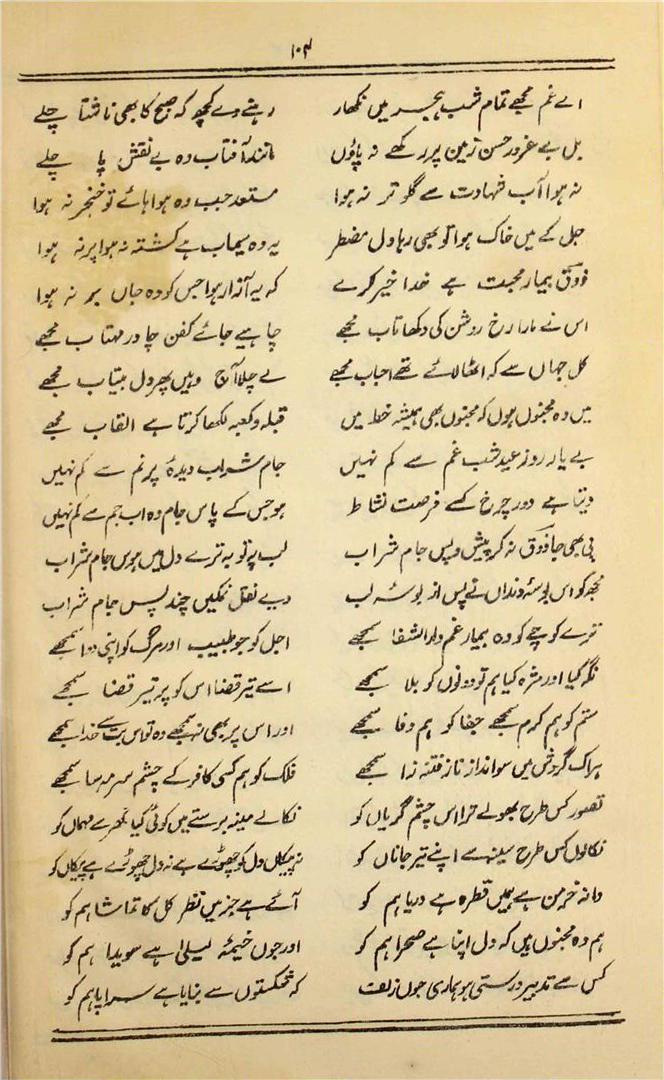 ۱۰۴
اے غم مجھے تمام شب ہجر میں نکھار رہنے دے کچھ کہ صبح کا بھی ناشتا چلے
بل بے غرور حسن زمین پر رکھے نہ پاؤں مانند آفتاب وہ بے نقش پا چلے
نہ ہوا آب شہادت سے گلو تر نہ ہوا مستعد جب وہ ہوا ہائے تو خنجر نہ ہوا
جل کے میں خاک ہوا تو بھی رہا دل مضطر یہ وہ سیماب ہے کشتہ نہ ہوا پر نہ ہوا
ذوق بیمار محبت ہے خدا خیر کرے کہ یہ آزار ہوا جس کو وہ جاں بر نہ ہوا
اس نے مارا رخ روشن کی دکھا تاب مجھے چاہیے جائے کفن چادر مہتاب مجھے
کل جہاں سے کہ اٹھا لائے تھے احباب مجھے لے چلا آج وہیں پھر دل بیتاب مجھے
میں وہ مجنوں ہوں کہ مجنوں بھی ہمیشہ خط میں قبلہ و کعبہ لکھا کرتا ہے القاب مجھے
بے یار روز عید شب غم سے کم نہیں جام شراب دیدۂ پر نم سے کم نہیں
دیتا ہے دور چرخ کسے فرصت نشاط ہو جس کے پاس جام وہ اب جم سے کم نہیں
پی بھی جا ذوق نہ کر پیش و پس جام شراب لب پر توبہ ترے دل میں ہوس جام شراب
مجھ کو اس بوسۂ دنداں نے پس از بوسۂ لب دیے نقل نمکیں چند پس جام شراب
ترے کوچے کو وہ بیمار غم دار الشفا سمجھے اجل کو جو طبیب اور مرگ کو اپنی دوا سمجھے
نگہ کیا اور مژہ کیا ہم تو دونوں کو بلا سمجھے اسے تیر قضا اس کو پر تیر قضا سمجھے
ستم کو ہم کرم سمجھے جفا کو ہم وفا سمجھے اور اس پر بھی نہ سمجھے وہ تو اس بت سے خدا سمجھے
ہر اک گردش میں سو انداز ناز فتنہ زا سمجھے فلک کو ہم کسی کافر کے چشم سرمہ سا سمجھے
تصور کس طرح بھولے ترا اس چشم گریاں کو نکالے مینہ برستے میں کوئی کیا گھر سے مہماں کو
نکالوں کس طرح سینہ سے اپنے تیر جاناں کو نہ پیکاں دل کو چھوڑے ہے نہ دل چھوڑے ہے پیکاں کو
دانہ خرمن ہے ہمیں قطرہ ہے دریا ہم کو آئے ہے جز میں نظر کل کا تماشا ہم کو
ہم وہ مجنوں ہیں کہ دل اپنا ہے صحرا ہم کو اور جوں خیمۂ لیلیٰ ہے سویدا ہم کو
کس سے تدبیر درستی ہو ہماری جوں زلف کہ شکستوں سے بنایا ہے سراپا ہم کو